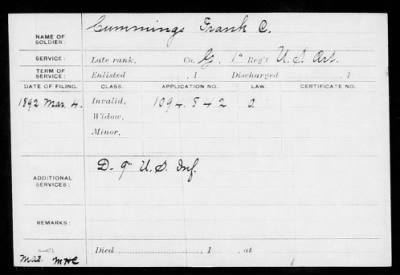 NAME OF SOLDIER: Cummings Frank C.
SERVICE: Late rank, Co. G. 1st Reg't U.S. Art.
TERM OF SERVICE: Enlisted , 1 Discharged , 1
DATE OF FILING. CLASS. APPLICATION NO. LAW. CERTIFICATE NO.
1892 Mar. 4. Invalid, 1094.542
Widow,
Minor,
ADDITIONAL SERVICES: D. 9" U.S. Inf.
REMARKS:
Died , 1 , at